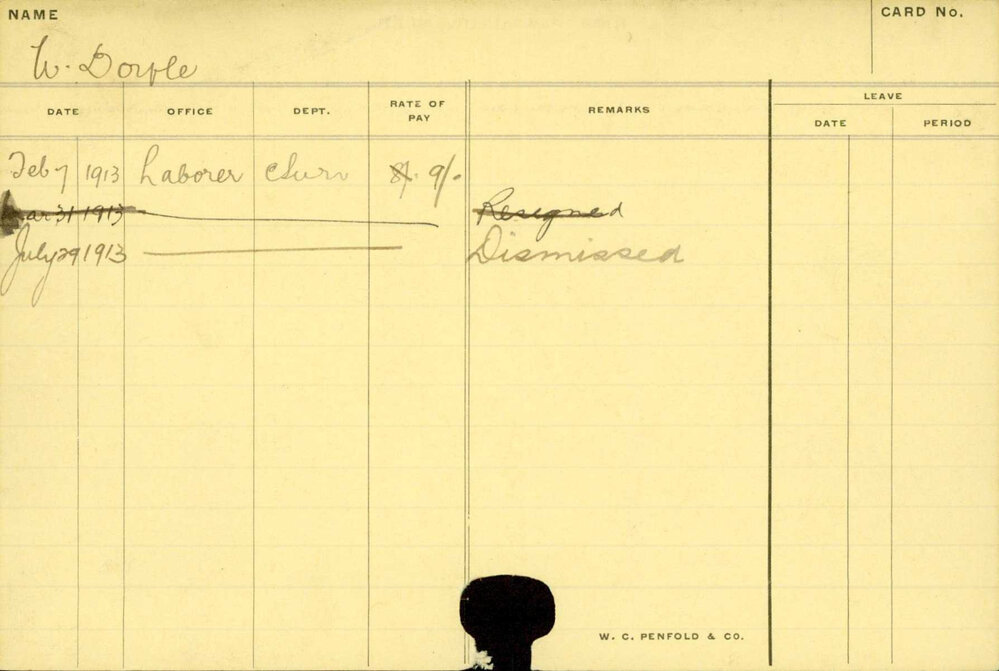 NAME
CARD No.
W.
DATE OFFICE DEPT. RATE OF PAY REMARKS LEAVE
DATE PERIOD
Feb 7 1913 Laborer 8/- 9/-
Mar 31 1913 Resigned
July 29 1913 Dismissed
W. C. PENFOLD & CO.